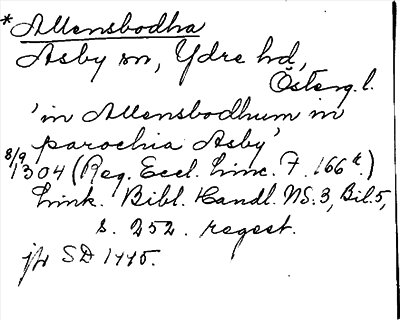 *Allensbodha
Asby sn, Ydre hd,
Österg. l.
'in Allensbodhum in
parochia Asby'
8/9 1304 (Reg. Eccl. Linc. F. 166 r.)
Link. Bibl. Handl. NS. 3, Bil. 5,
s. 252. regest.
jfr SD 1445.